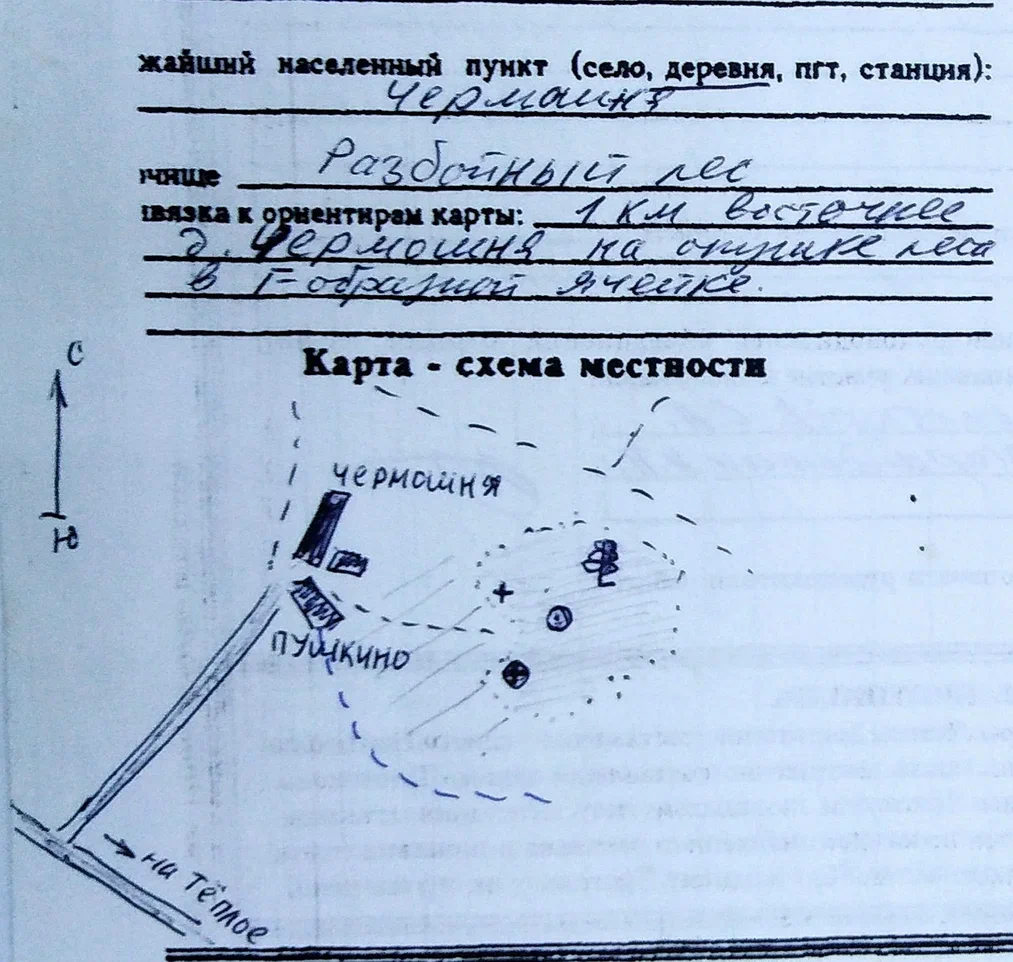 жайший населенный пункт (село, деревня, пгт, станция):
Чермошня
чище Разбойный лес
вязка к ориентирам карты: 1 км восточнее
д. Чермошня на опушке леса
в Г-образной ячейке.
Карта - схема местности
С
Ю
ЧЕРМОШНЯ
ПУШКИНО
НА ТЁПЛОЕ